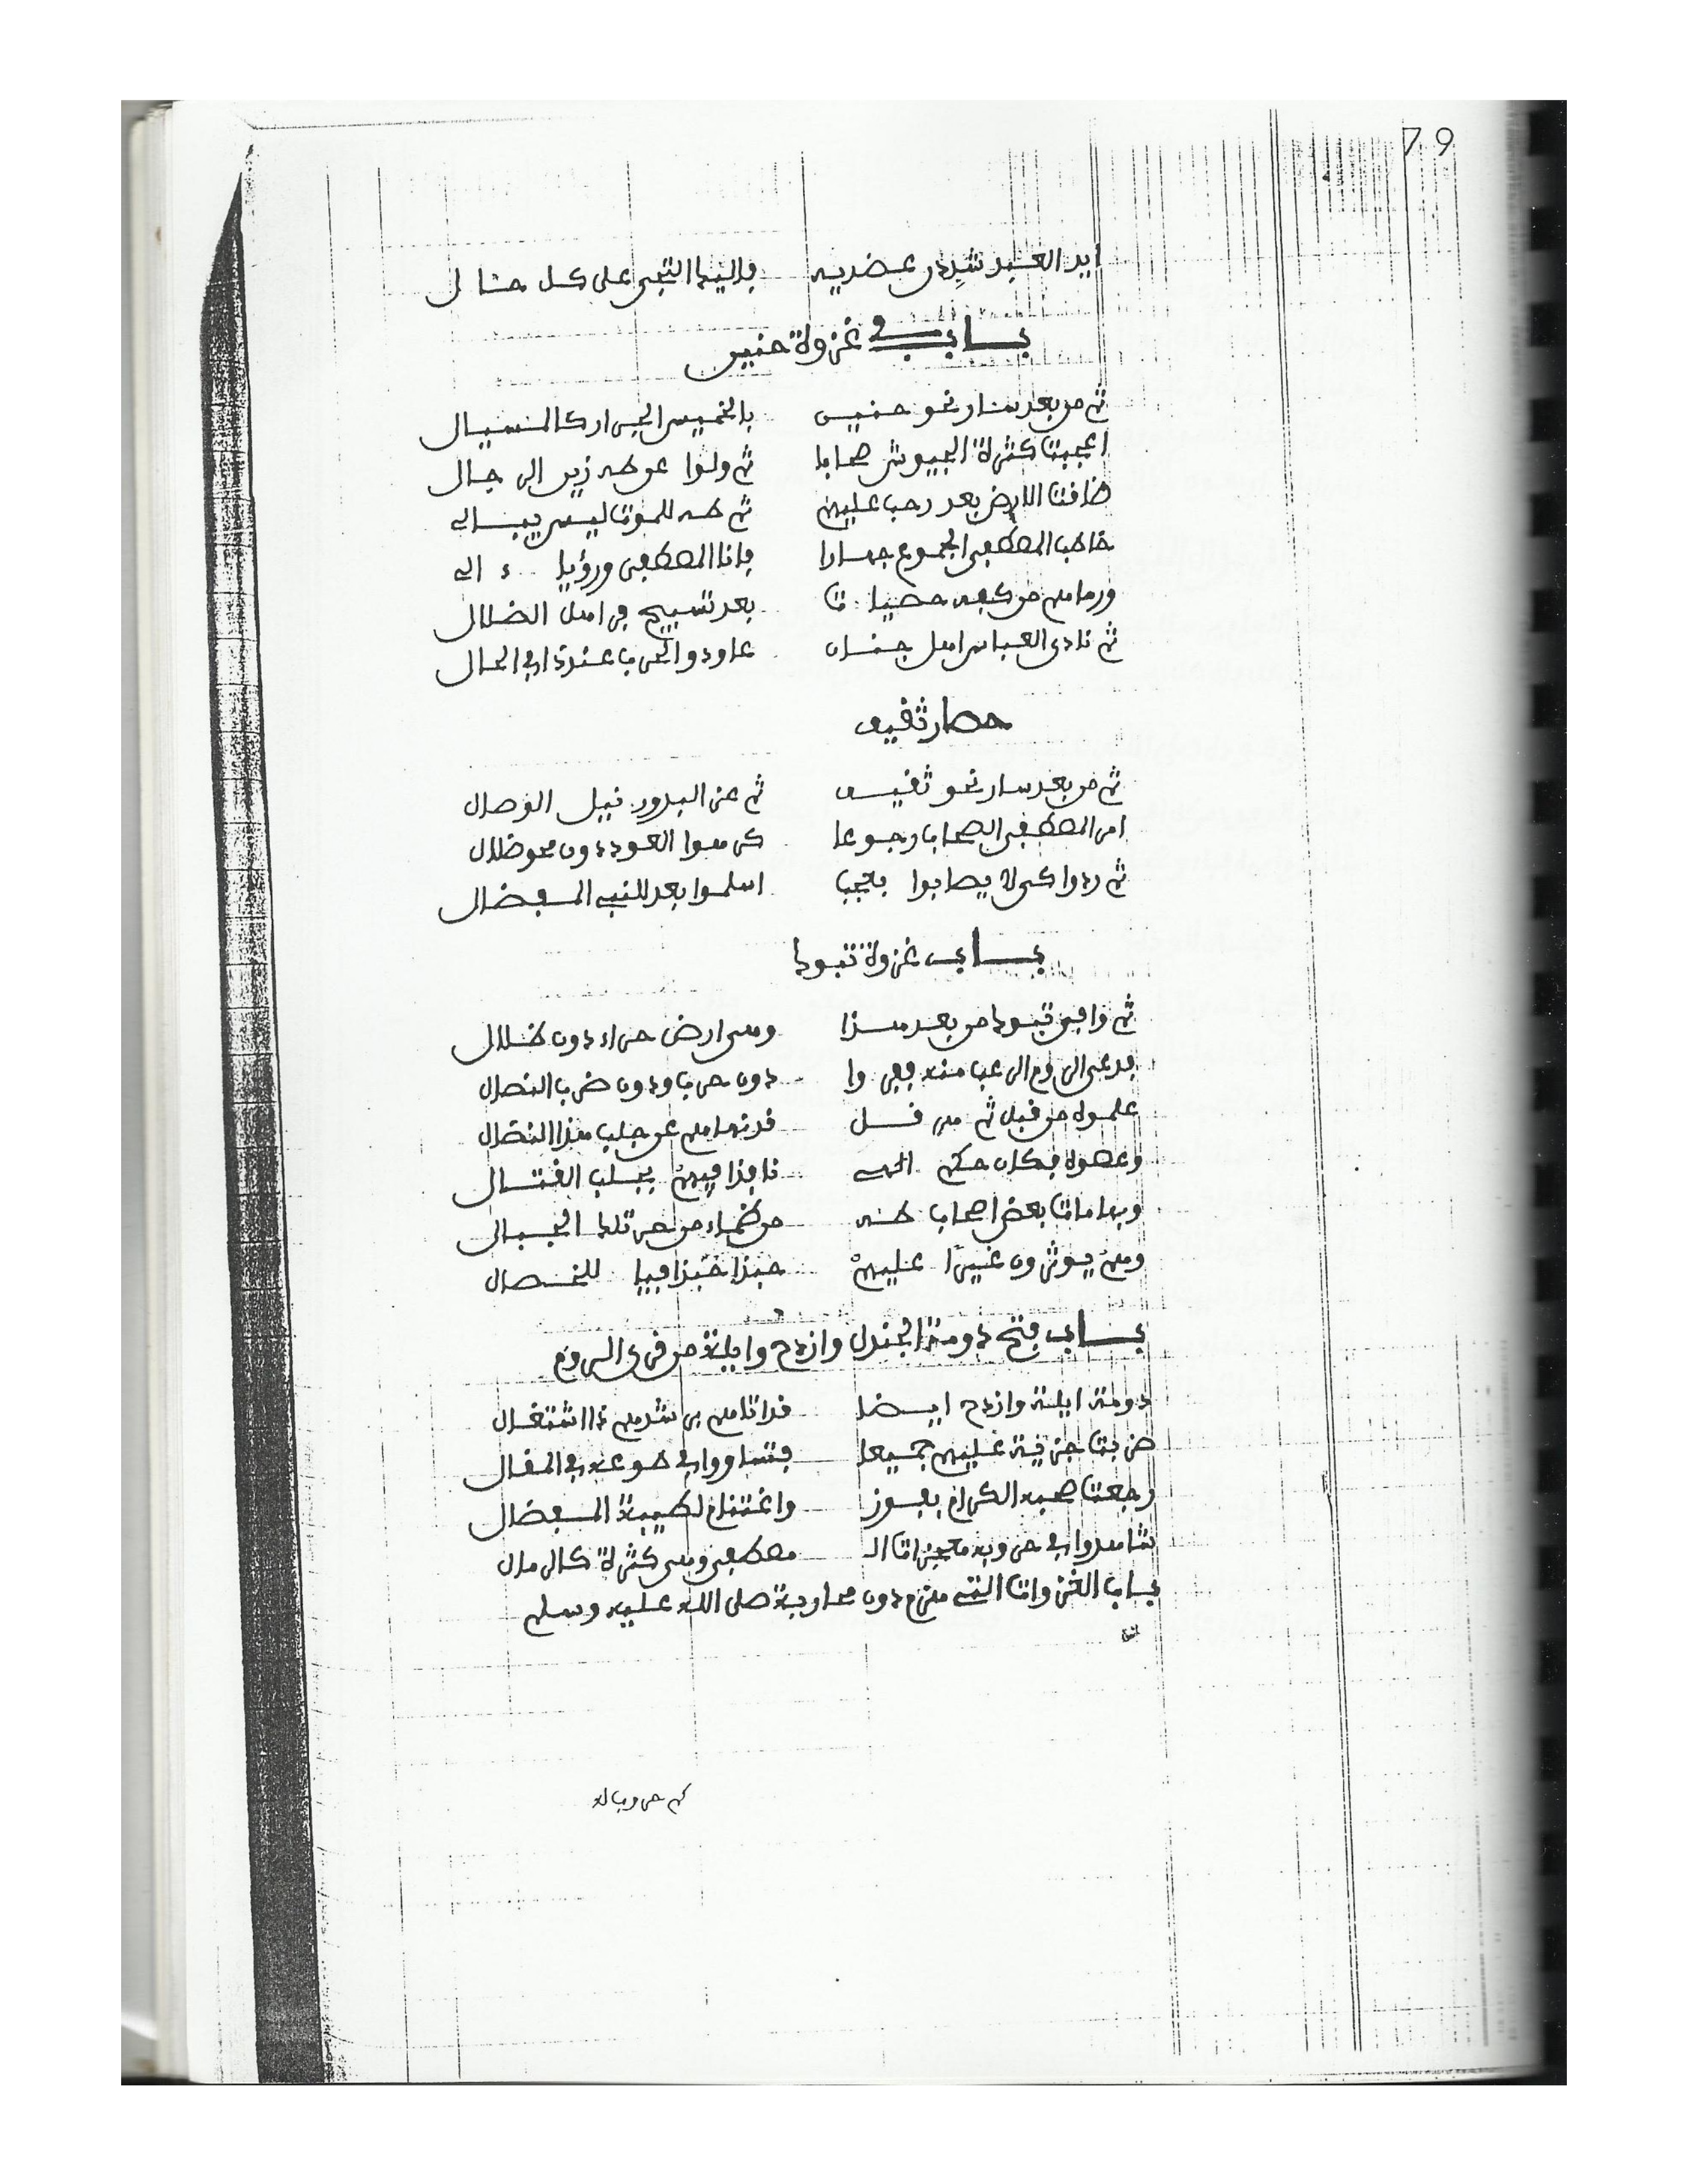 79
ايد العبد شيدن عضديه فاليك التجى على كل حال
باب في غزوة حنين
ثم من بعد سار نحو حنين بالخميس الجرار كالسيال
اعجبت كثرة الجيوش صحابا ثم ولوا عن طه زين الرجال
ضاقت الارض بعد رحب عليهم ثم طه للموت ليس يبالي
خاطب المصطفى الجموع جهارا فانا المصطفى ورؤيا
ورماهم من كفه حصيات بعد تسبيح في اهل الضلال
ثم نادى العباس اهل جنان عاودوا الحرب عندنا في الحال
حصار ثقيف
ثم من بعد سار نحو ثقيف ثم عز البدور نيل الوصال
امر المصطفى الصحاب رجوعا كرهوا العود دون محو ضلال
ثم ردوا كي لا يصابوا بعجب اسلموا بعد للنبي المفضال
باب غزوة تبوك
ثم وافى تبوك من بعد هذا وهي ارض حراء دون ظلال
قد عرى الروم الرعب منه ففروا دون حرب ودون ضرب النصال
علموه من قبل ثم هرقل قد نهاهم عن جلب هذا النضال
وعصوه فكان حكم الهي نافذا فيهم بجلب القتال
وبها مات بعض اصحاب طه من ظماء من حر تلك الجبال
وهم يوثرون غيرا عليهم حبذا حبذا فيا للخصال
باب فتح دومة الجندل وازرح وايلة من قرى الروم
دومة ايلة وازرح ايضا قد اتاهم بر شدهم ذا اشتغال
ضربت جزية عليهم جميعا فتساووا في طوعه في المقال
رجعت صحبه الكرام بفوز واغتنام لطيبة المفضال
شاهدوا في حروبه معجزات الـ مصطفى وهي كثرة كالرمال
باب الغزوات التي هزم دون محاربة صلى الله عليه وسلم
كم حروب له